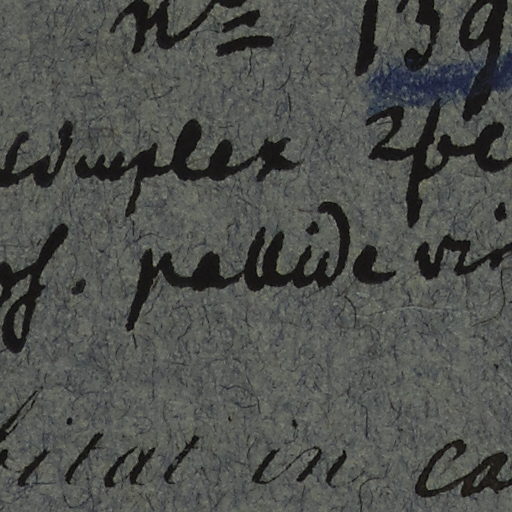 No 139
complex 2pe
of. pallide vin
bitat in ca